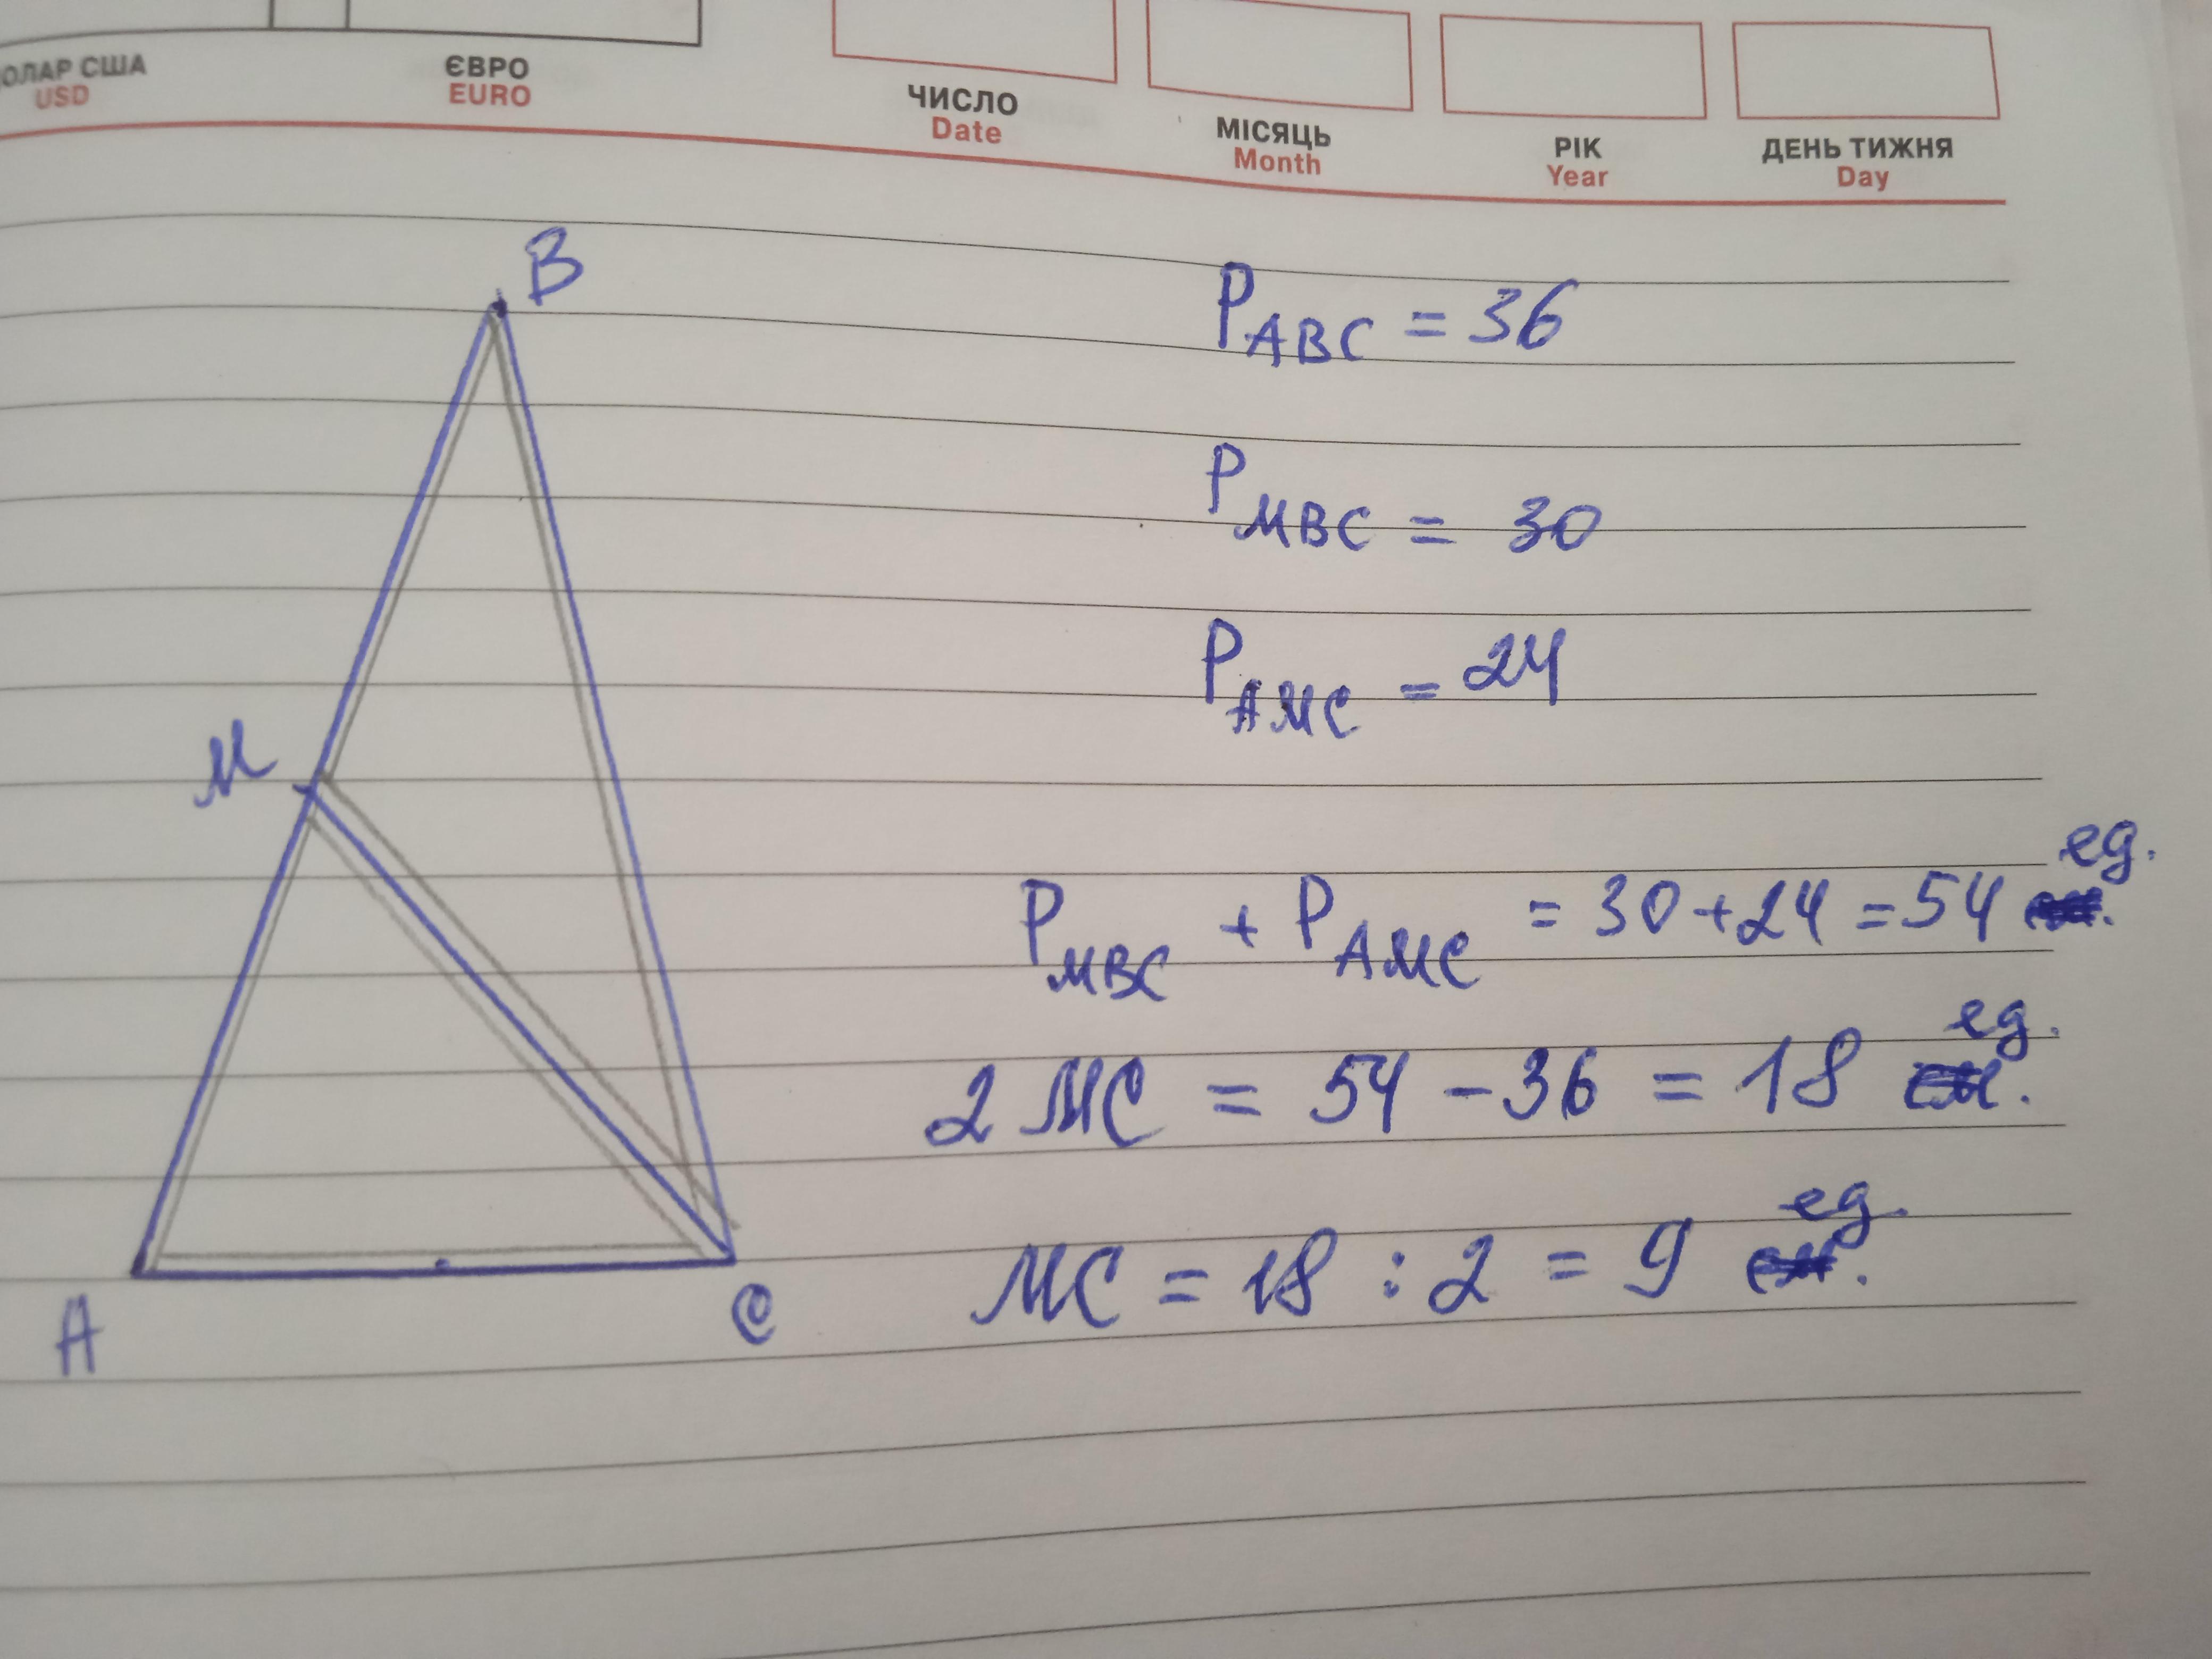 ОЛАР США
USD
ЄВРО
EURO
ЧИСЛО
Date
МІСЯЦЬ
Month
РІК
Year
ДЕНЬ ТИЖНЯ
Day
B
M
A
C
P ABC = 36
P MBC = 30
P AMC = 24
P MBC + P AMC = 30 + 24 = 54 ед.
2 MC = 54 - 36 = 18 ед.
MC = 18 : 2 = 9 ед.